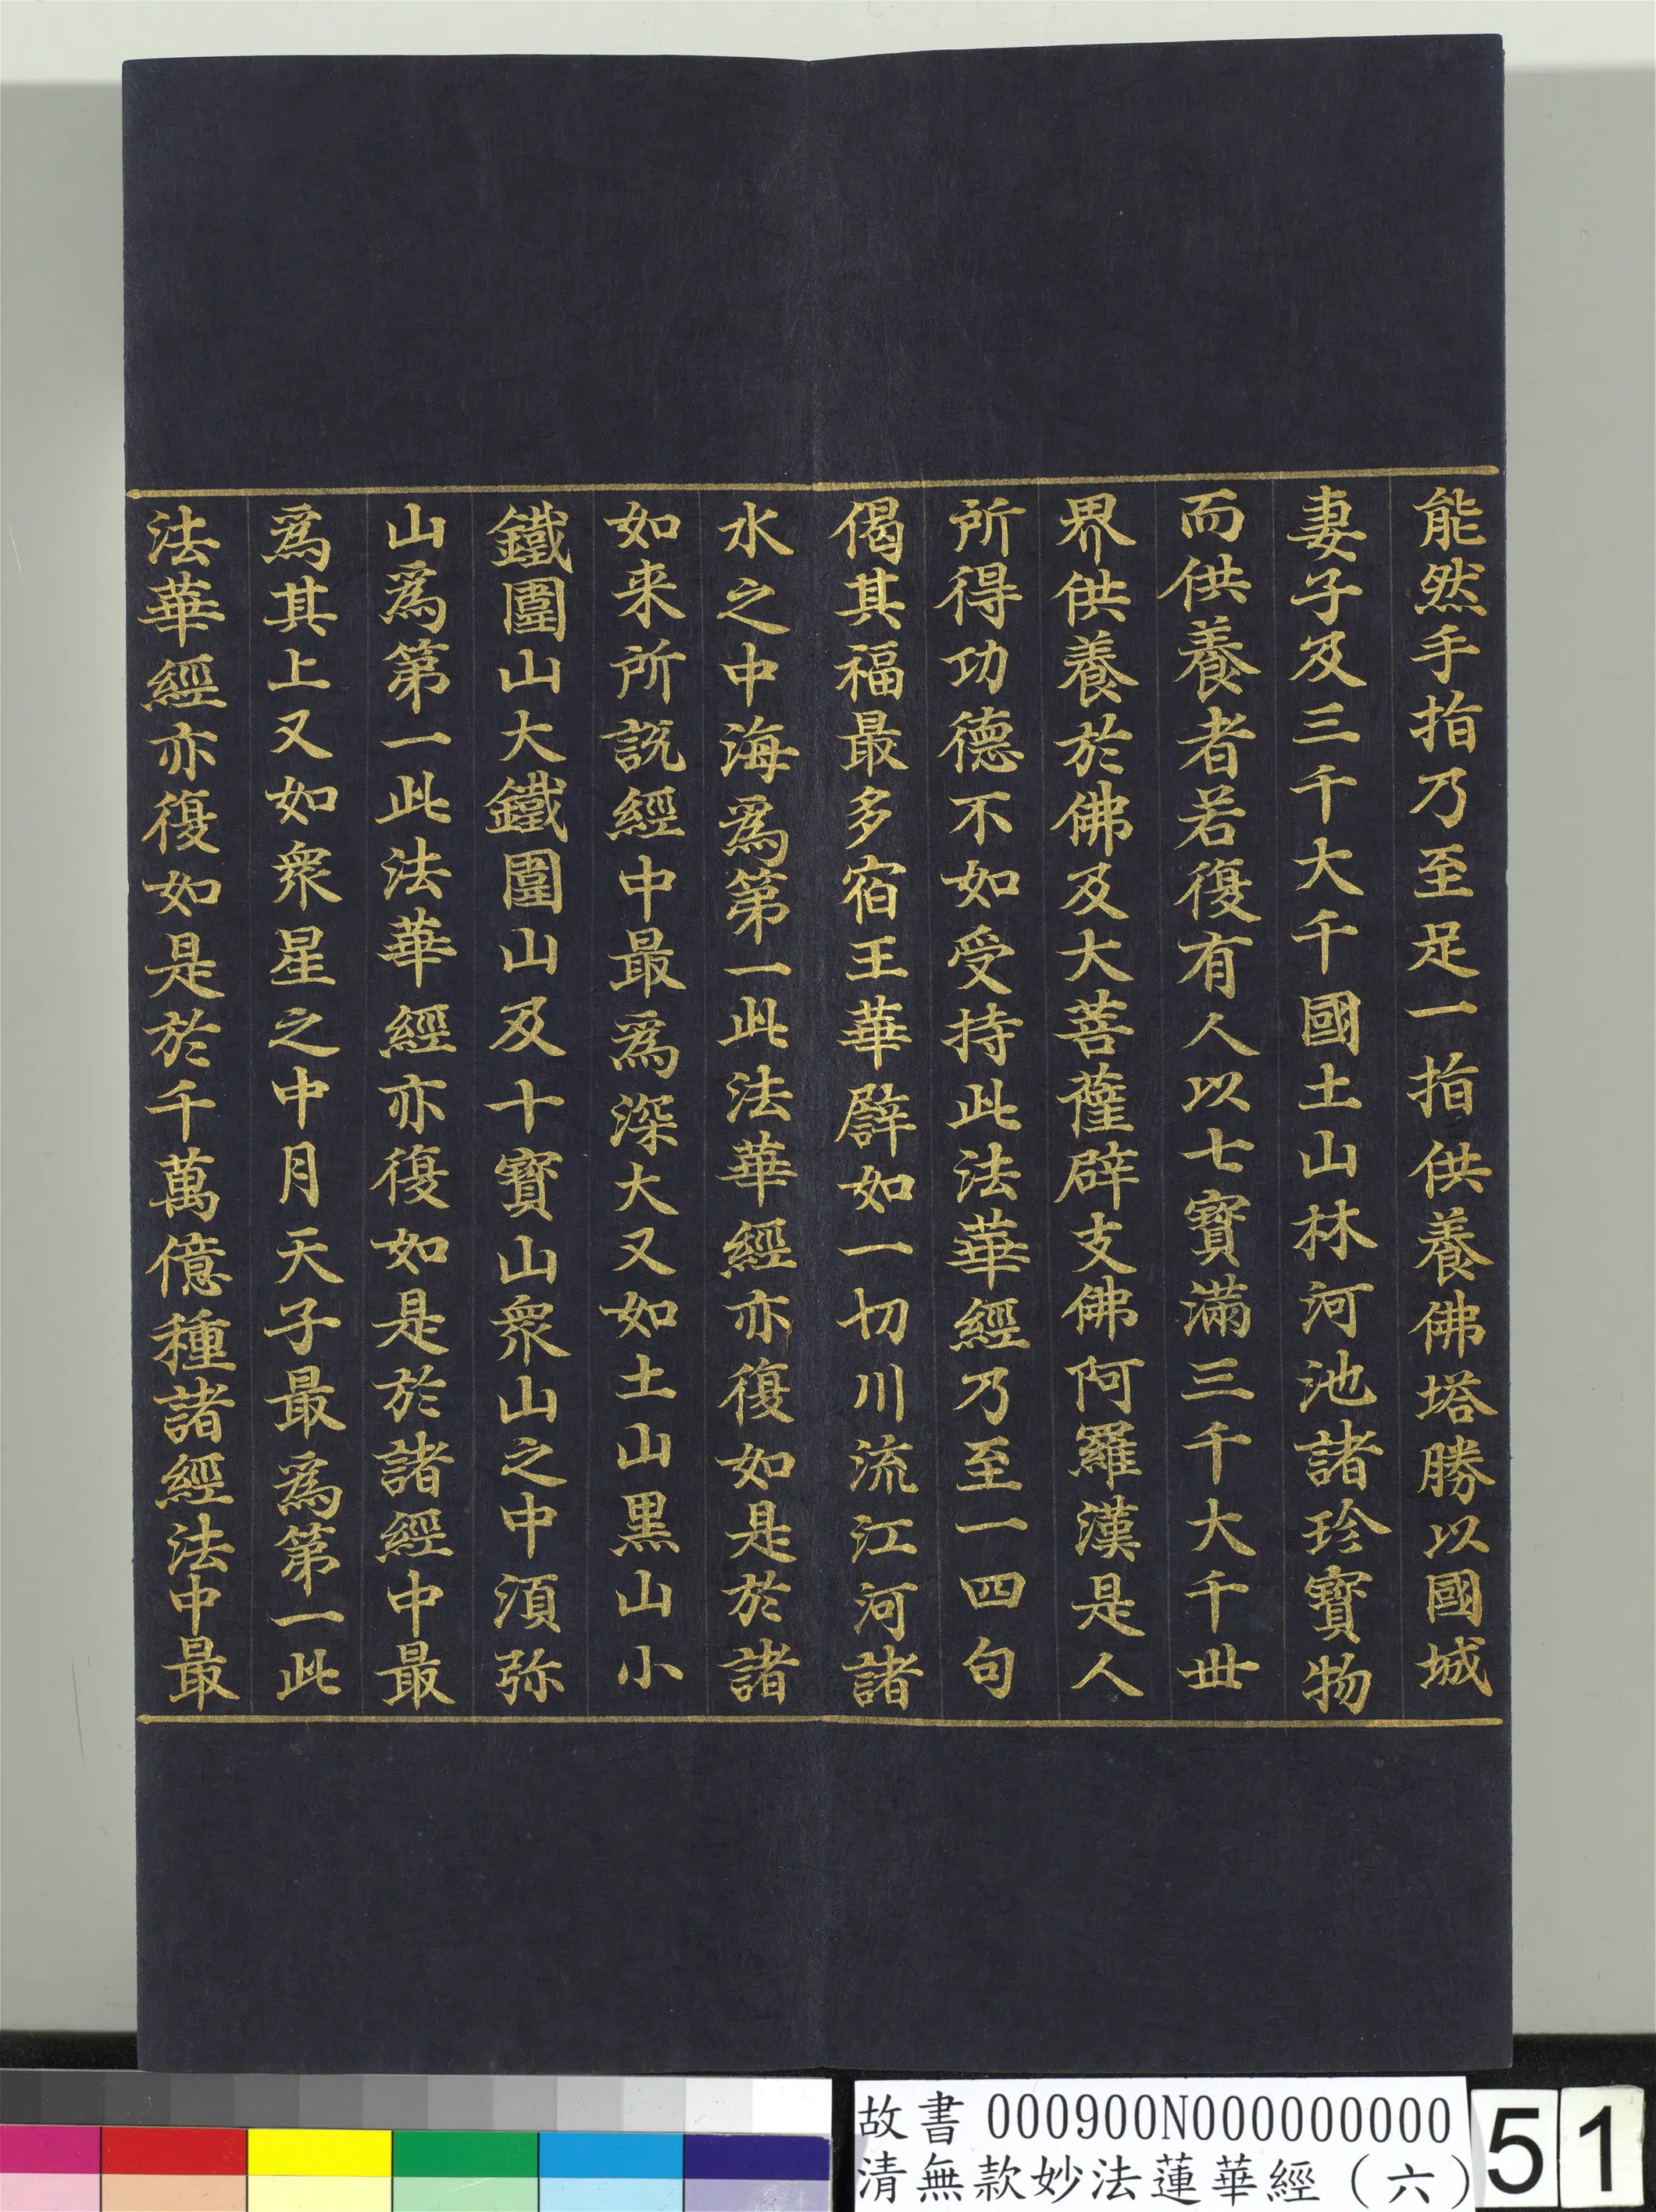 能然手指乃至足一指供養佛塔勝以國城
妻子及三千大千國土山林河池諸珍寶物
而供養者若復有人以七寶滿三千大千世
界供養於佛及大菩薩辟支佛阿羅漢是人
所得功德不如受持此法華經乃至一四句
偈其福最多宿王華譬如一切川流江河諸
水之中海為第一此法華經亦復如是於諸
如来所說經中最為深大又如土山黑山小
鐵圍山大鐵圍山及十寶山眾山之中湏弥
山為第一此法華經亦復如是於諸經中最
為其上又如眾星之中月天子最為第一此
法華經亦復如是於千萬億種諸經法中最
故書 000900N000000000
清無款妙法蓮華經（六）
51